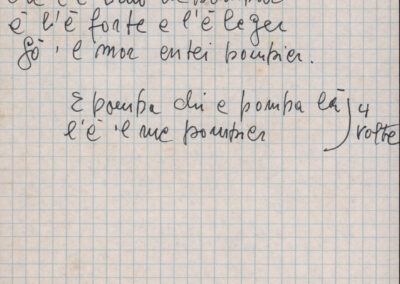 è l'è forte e l'è leger
Gò 'l mor entei pompier.
E pomba chi e pomba là
l'è 'l me pompier
4
volte